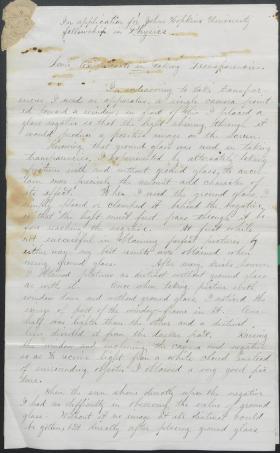 In application for Johns Hopkins University
fellowship in Physics.
Some experiments in taking Transparencies.
In endeavoring to take transpar-
encies I used an apparatus, a single camera point-
ed toward a window, in front of this I placed a
glass negative so that the light passing through it
would produce a positive image on the screen.
Knowing that ground glass was used in taking
transparencies, I experimented by alternately taking
pictures with and without ground glass, to ascer-
tain more precisely the amount and character of
its effect. When I used the ground glass I
simply placed or clamped it behind the negative,
so that the light must first pass through it be-
fore reaching the negative. At first while
not successful in obtaining perfect pictures by
either way, my best results were obtained when
using ground glass. After many trials, however,
I obtained pictures as distinct without ground glass
as with it. Once when taking picture with
window down and without ground glass, I noticed the
image of part of the window-frame in it. One
half was lighter than the other and a distinct
line divided it from the darker part. Raising
the window and inclining the camera and negative
so as to receive light from a white cloud instead
of surrounding objects, I obtained a very good pic-
ture.
When the sun shone directly upon the negative
I had no difficulty in observing the value of ground
glass. Without it no image at all distinct could
be gotten, but directly after placing ground glass